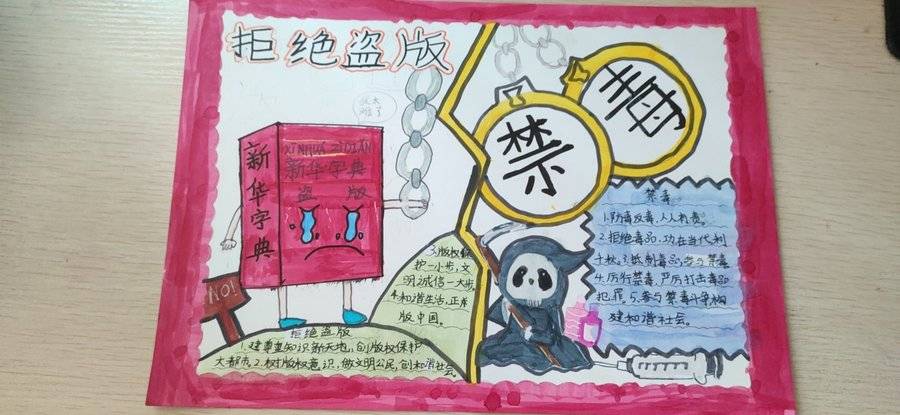 拒绝盗版
太
难了
新华字典
XINHUA ZIDIAN
新华字典
盗版
NO!
3.版权保
护一小步,文
明诚信一大步。
4.和谐生活,正
版中国。
拒绝盗版
1.建尊重知识新天地,创版权保护
大都市。2.树版权意识,做文明公民,创和谐社会。
禁毒
禁毒
1.防毒反毒,人人有责。
2.拒绝毒品,功在当代,利
千秋。3.抵制毒品,参与禁毒
4.厉行禁毒,严厉打击毒品
犯罪。5.参与禁毒斗争,构
建和谐社会。